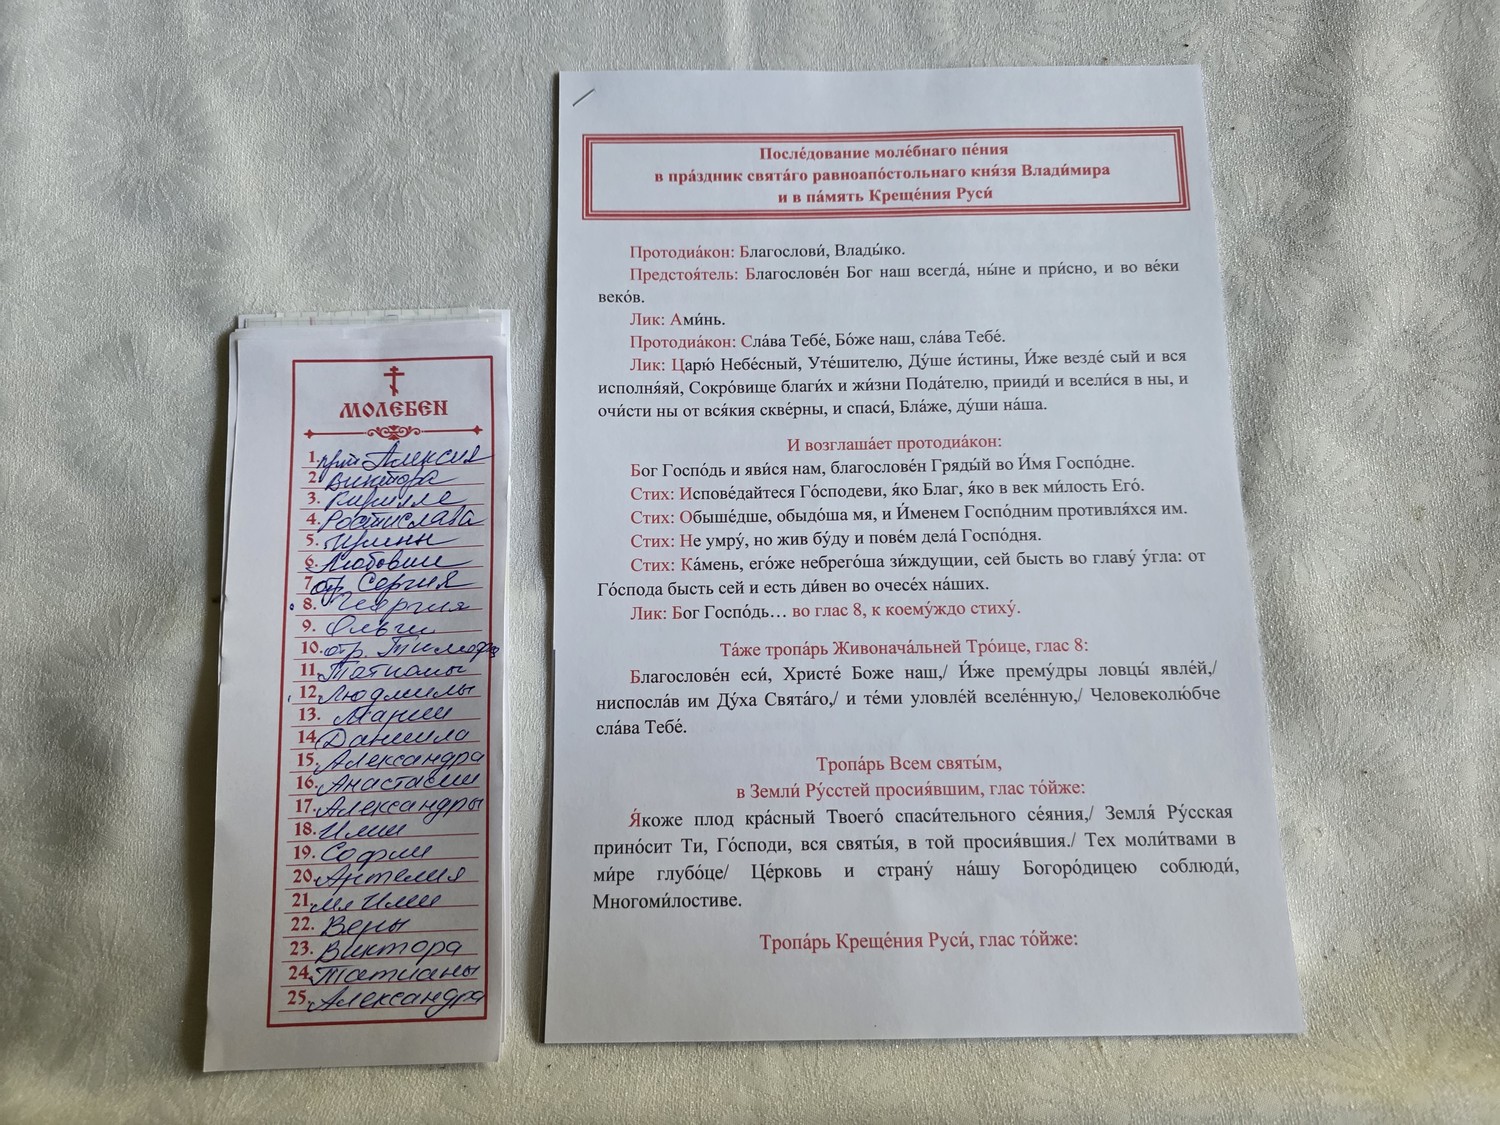 МОЛЕБЕН
1. Алексия
2. Виктора
3. Кирилла
4. Ростислава
5.
6. Любовии
7. отр. Сергия
8. Георгия
9. Ольги
10. отр. Тимофея
11. Татианы
12. Людмилы
13. Марии
14. Даниила
15. Александра
16. Анастасии
17. Александры
18. Илии
19. Софии
20.
21. мл Илии
22. Веры
23. Виктора
24. Татианы
25. Александра
После́дование моле́бнаго пе́ния
в пра́здник свята́го равноапо́стольнаго кня́зя Влади́мира
и в па́мять Креще́ния Руси́
Протодиа́кон: Благослови́, Влады́ко.
Предстоя́тель: Благослове́н Бог наш всегда́, ны́не и при́сно, и во ве́ки
веко́в.
Лик: Ами́нь.
Протодиа́кон: Сла́ва Тебе́, Бо́же наш, сла́ва Тебе́.
Лик: Царю́ Небе́сный, Уте́шителю, Ду́ше и́стины, И́же везде́ сый и вся
исполня́яй, Сокро́вище благи́х и жи́зни Пода́телю, прииди́ и всели́ся в ны, и
очи́сти ны от вся́кия скве́рны, и спаси́, Бла́же, ду́ши на́ша.
И возглаша́ет протодиа́кон:
Бог Госпо́дь и яви́ся нам, благослове́н Гряды́й во И́мя Госпо́дне.
Стих: Испове́дайтеся Го́сподеви, я́ко Благ, я́ко в век ми́лость Его́.
Стих: Обыше́дше, обыдо́ша мя, и И́менем Госпо́дним противля́хся им.
Стих: Не умру́, но жив бу́ду и пове́м дела́ Госпо́дня.
Стих: Ка́мень, его́же небрего́ша зи́ждущии, сей бысть во главу́ у́гла: от
Го́спода бысть сей и есть ди́вен во очесе́х на́ших.
Лик: Бог Госпо́дь… во глас 8, к коему́ждо стиху́.
Та́же тропа́рь Живонача́льней Тро́ице, глас 8:
Благослове́н еси́, Христе́ Боже наш,/ И́же прему́дры ловцы́ явле́й,/
ниспосла́в им Ду́ха Свята́го,/ и те́ми уловле́й вселе́нную,/ Человеколю́бче
сла́ва Тебе́.
Тропа́рь Всем святы́м,
в Земли́ Ру́сстей просия́вшим, глас то́йже:
Я́коже плод кра́сный Твоего́ спаси́тельного се́яния,/ Земля́ Ру́сская
прино́сит Ти, Го́споди, вся святы́я, в той просия́вшия./ Тех моли́твами в
ми́ре глубо́це/ Це́рковь и страну́ на́шу Богоро́дицею соблюди́,
Многоми́лостиве.
Тропа́рь Креще́ния Руси́, глас то́йже: